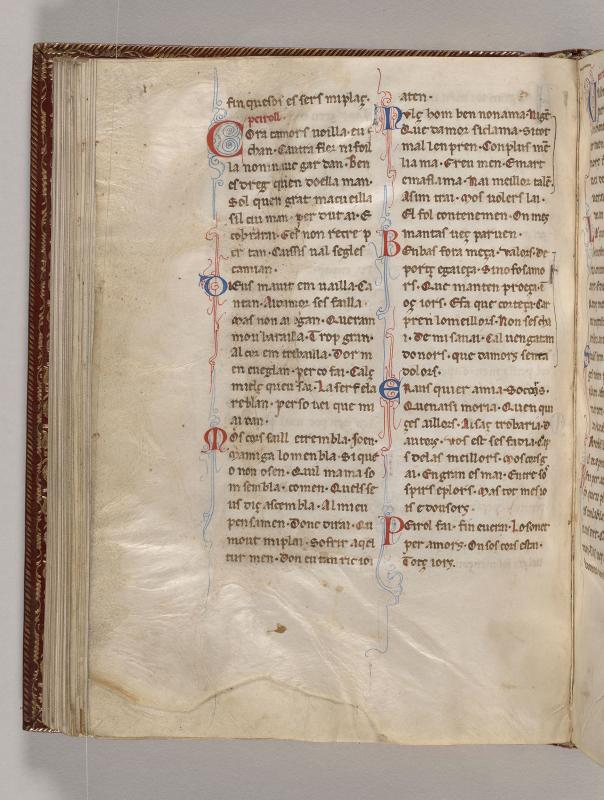 fin ques dί es sers mi plaç.
peiroll.
Cora camors uoilla. eu e
chan. Caura flor ni foil
la non mauc gar dan. Ben
es dreg quen doella man.
Sol quen grat macueilla
sil cui man. per dut ai. E
cobrarai. Ges non recre p
er tan. Caissis ual segles
camian.
Dieus maiut em uailla. Ca
ntan. Auamor ses failla.
mas non ai gan. Queram
mou baralla. Trop gran.
Al cor em trebailla. Dor m
en eueglan. per co fai. Calç
mielç quen sai. La ser fela
reblan. per so uei que mi
uai dan.
Mos cors saill e trembla. soen.
Mamiga lo men bla. Si que
o non o sen. Quil mama so
m sembla. comen. Quels se
us diç ascembla. Al mieu
pensamen. Donc dirai. Cu
mout mi plai. Sofrir aqel
tur men. Don eu tan ric ioi
aten.
Molç hom ben non ama.
Que damor si clama. Si tot
mal len pren. Con plus me
lia ma. Eren men. Em art
em aflama. Nai meillor talē.
Asim trai. Mos uolers lai.
El fol contenemen. On meç
mantas ueç par uen.
Ben bas fora meça. Valors. de
portç egaieça. Si no fos amo
rs. Que manten proeça.
oç iors. Esa que corteça. Car
pren lo meillors. Non ses cha
i. De mi sa nai. Cal uengatan
donors. que damors senta
dolors.
Eraus quier amia. Socors.
Quen aisi moria. Quen qui
ces aillors. Assaç trobaria. d
autors. vos est ses fadia. Cap
s de las meillors. Mos coraç
ai. En gran esmai. Entre so
spirs e plors. Mas tot me so
is e dousors.
Peirol fai. fin e uerai. Lo sonet
per amors. On sos cors estai.
Totç iors.